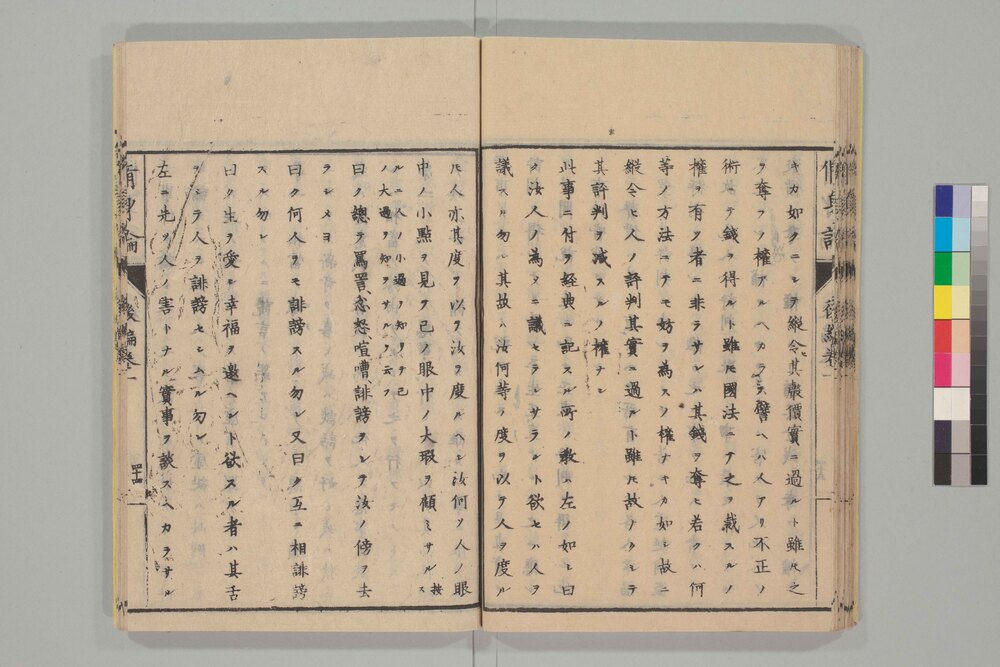 キカ如クニシテ縦令其聚價實ニ過ルト雖ﾄﾓ之
ヲ奪フノ權アルヘカラス譬ヘハ人アリ不正ノ
術ニテ錢ヲ得ルト雖ﾄﾓ國法ニテ之ヲ裁スルノ
權ヲ有ツ者ニ非ラサレハ其錢ヲ奪ヒ若クハ何
等ノ方法ニテモ妨ヲ為スノ權ナキカ如シ故ニ
縱令ヒ人ノ評判其實ニ過ルト雖ﾄﾓ故ナクシテ
其評判ヲ減スルノ權ナシ
此事ニ付テ經典ニ記スル所ノ敎ハ左ノ如シ曰
ク汝人ノ為メニ議セラレサラント欲セハ人ヲ
議スル勿レ其故ハ汝何等ノ度ヲ以テ人ヲ度ル
ﾄﾓ人亦其度ヲ以テ汝ヲ度ルヘシ汝何ソ人ノ眼
中ノ小點ヲ見テ己ノ眼中ノ大瑕ヲ顧ミサル 按ス
ルニ人ノ小過ヲ知リテ己
ノ大過ヲ知ラサルヲ云フ
曰ク總テ罵詈忿怒喧嘈誹謗ヲシテ汝ノ傍ヲ去
ラシメヨ
曰ク何人ヲモ誹謗スル勿レ又曰ク互ニ相誹謗
スル勿レ
曰ク生ヲ愛シ幸福ヲ邀ヘント欲スル者ハ其舌
ヲシテ人ヲ誹謗セシムル勿レ
左ニ先ツ人ノ害トナル實事ヲ談スヘカラサル
後編卷一
四十四